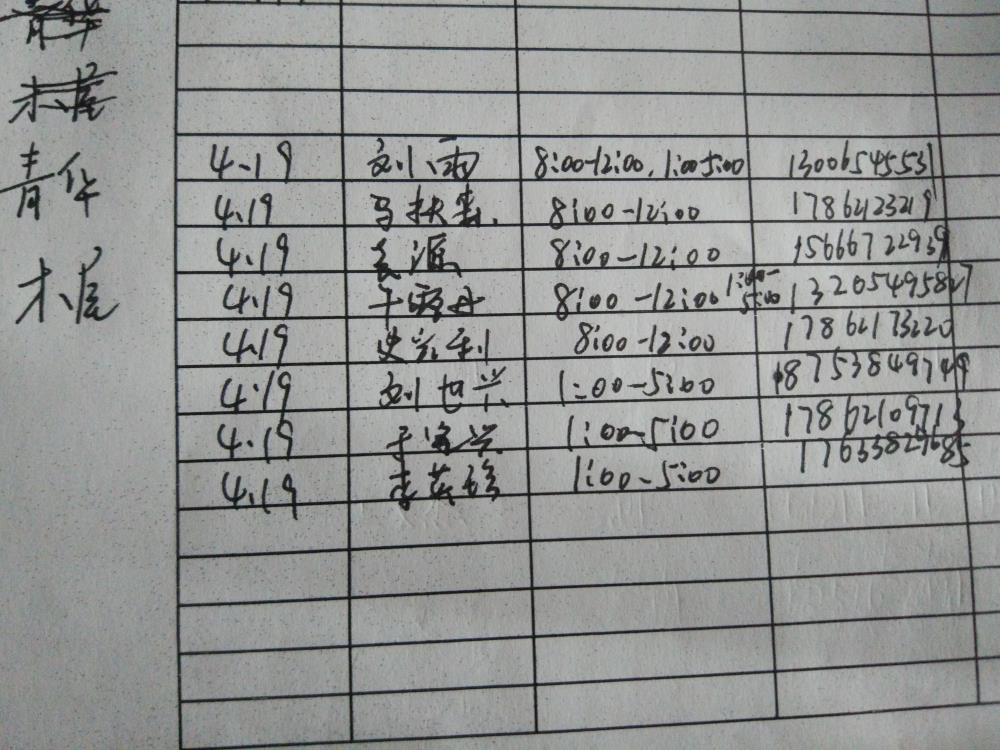 青华
木、屋
青华 4.19 刘小雨 8:00-12:00, 1:00 5:00 13006545531
4.19 马扶森 8:00-12:00 17862123219
4.19 8:00-12:00 15666722939
木、屋 4.19 8:00-12:00 1:00-5:00 13205495827
4.19 史兴利 8:00-12:00 17862173220
4.19 刘世兴 1:00-5:00 18753849749
4.19 于海兴 1:00-5:00 17862109713
4.19 李英珍 1:00-5:00 17633829685